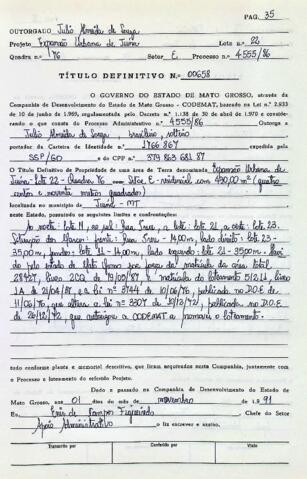 PAG. 35
OUTORGADO Julio Almeida de Souza
Projeto Expansão Urbana de Juina Lote n.o 22
Quadra n.o 76 Setor E Processo n.o 4555/86
TÍTULO DEFINITIVO N.o 00658
O GOVERNO DO ESTADO DE MATO GROSSO, através da
Companhia de Desenvolvimento do Estado de Mato Grosso - CODEMAT, baseado na Lei n.o 2.933
10 de junho de 1969, regulamentada pelo Decreto n.o 1.138 de 30 de abril de 1970 e considerando
o que consta do Processo Administrativo n.o 4555/86 Outorga a
Julio Almeida de Souza brasileiro, solteiro
portador da Carteira de Identidade n.o 1766867 expedida pela
SSP/GO e do CPF n.o 379 863 681 87
O Título Definitivo de Propriedade de uma Área de Terra denominada Expansão Urbana de
Juina - Lote 22 - Quadra 76 com Setor E - residencial com 490,00 m² (quatro
centos e noventa metros quadrados)
localizada no município de Juina - MT
neste Estado, possuindo os seguintes limites e confrontações:
ao norte: lote 11, ao sul: Rua, a leste: lote 21, a oeste: lote 23.
frente: Rua - 14,00m, lado direito: lote 23 -
35,00m, fundos: lote 11 - 14,00m, lado esquerdo: lote 21 - 35,00m
pelo estado de Mato Grosso por força da matrícula da área total
28427, livro 2CQ de e matrícula do loteamento livro
de 21/04/81, e a lei n.o 3744 de 10/06/76, publicada no D.O.E de
11/06/76, que altera a lei n.o 3307 de 18/12/72, publicada no D.O.E
de 26/12/72 que autoriza a CODEMAT a promover o loteamento.
tudo conforme planta e memorial descritivo, que ficam arquivados nesta Companhia, juntamente com
o Processo e loteamento do referido Projeto.
Dado e passado na Companhia de Desenvolvimento do Estado de
Mato Grosso, aos 01 dias do mês de novembro de 1.991
Eu, Enir de Campos Figueiredo Chefe do Setor
Apoio Administrativo o fiz escrever e assino.
Transcrito por Conferido por Visto